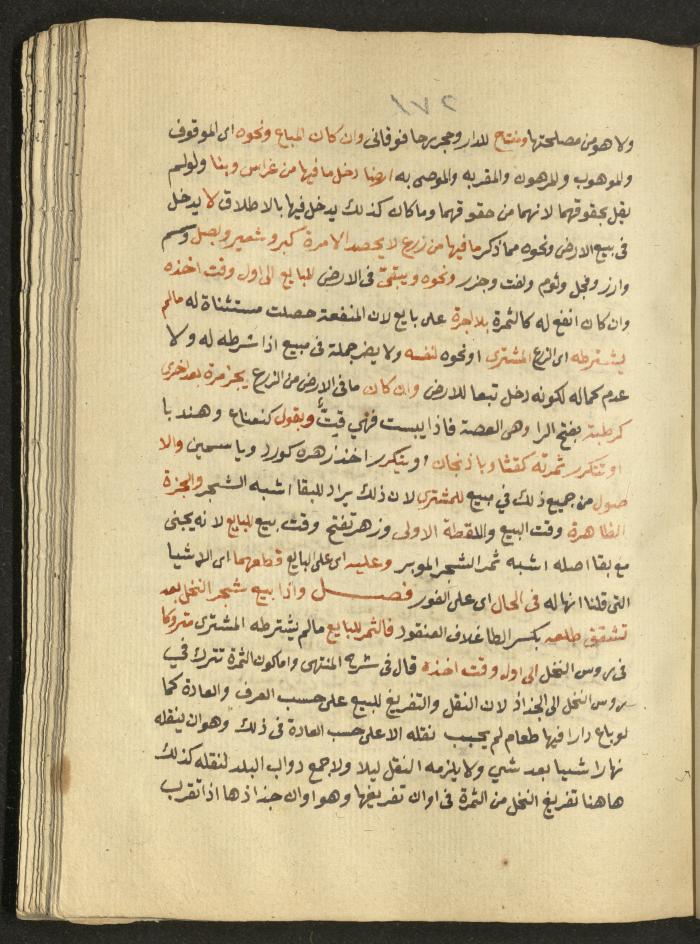 ٢٧١
ولا هو من مصلحتها ومفتاح للدار وحجر رحا فوقانى وان كان المباع ونحوه اى الموقوف
والموهوب والمرهون والمقر به والموصى به ارضا دخل ما فيها من غراس وبنا ولو لم
يقل بحقوقهما لانهما من حقوقهما وما كان كذلك يدخل فيها بالاطلاق لا يدخل
فى بيع الارض ونحوه مما ذكر ما فيها من زرع لا يحصد الا مرة كبر وشعير وبصل وسمسم
وارز وفجل وثوم ولفت وجزر ونحوه ويبقى فى الارض للبايع الى اول وقت اخذه
وان كان انفع له كالثمرة بلا اجرة على بايع لان المنفعة حصلت مستثناة له مالم
يشترطه اى الزرع المشترى او نحوه لنفسه ولا يضر جهله فى مبيع اذا شرطه له ولا
عدم كماله لكونه دخل تبعا للارض وان كان ما فى الارض من الزرع يجز مرة بعد اخرى
كرطبة بفتح الرا وهى الفصة فاذا يبست فهي قت وبقول كنعناع وهندبا
او تتكرر ثمرته كقثا وباذنجان او يتكرر اخذ زهره كورد وياسمين والا
صول من جميع ذلك في مبيع للمشترى لان ذلك يراد للبقا اشبه الشجر والجزة
الظاهرة وقت البيع واللقطة الاولى وزهر تفتح وقت بيع للبايع لانه يجنى
مع بقا اصله اشبه ثمر الشجر الموبر وعليه اى على البايع قطعهما اى الاشيا
التى قلنا انها له فى الحال اى على الفور فصل واذا بيع شجر النخل بعد
تشقق طلعه بكسر الطا غلاف العنقود فالثمر للبايع مالم يشترطه المشترى متروكا
فى روس النخل الى اول وقت اخذه قال فى شرح المنتهى واما كون الثمرة تترك في
روس النخل الى الجذاذ لان النقل والتفريغ للمبيع على حسب العرف والعادة كما
لو باع دارا فيها طعام لم يجب نقله الا على حسب العادة فى ذلك وهو ان ينقله
نهارا شيا بعد شي ولا يلزمه النقل ليلا ولا جمع دواب البلد لنقله كذلك
هاهنا تفريغ النخل من الثمرة فى اوان تفريغها وهو اوان جذاذها اذا تقرب